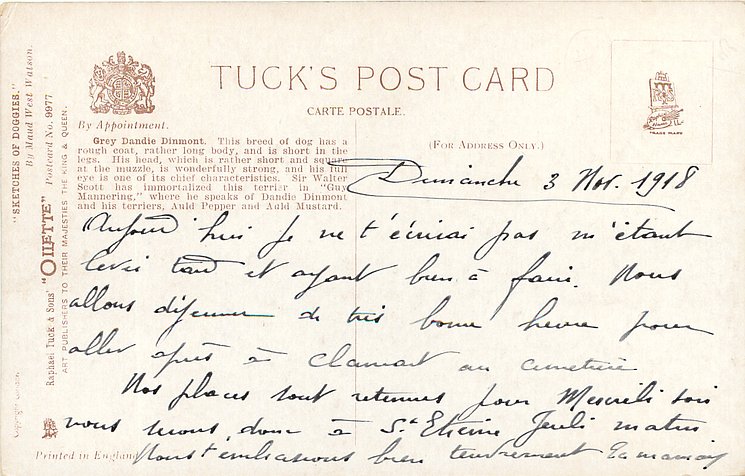 TUCK'S POST CARD
CARTE POSTALE.
By Appointment.
(FOR ADDRESS ONLY.)
TRADE MARK
Grey Dandie Dinmont. This breed of dog has a
rough coat, rather long body, and is short in the
legs. His head, which is rather short and square
at the muzzle, is wonderfully strong, and his full
eye is one of its chief characteristics. Sir Walter
Scott has immortalized this terrier in "Guy
Mannering," where he speaks of Dandie Dinmont
and his terriers, Auld Pepper and Auld Mustard.
"SKETCHES OF DOGGIES."
By Maud West Watson.
Raphael Tuck & Sons' "OILETTE" Postcard No. 9977
ART PUBLISHERS TO THEIR MAJESTIES THE KING & QUEEN.
Printed in England
Dimanche 3 Nov. 1918
Aujourd'hui je ne t'écrirai pas m'étant
levée tard et ayant bien à faire. Nous
allons déjeuner de très bonne heure pour
aller après à Clamart au cimetière
Nos places sont retenues pour Mercredi soir
nous serons donc à St Etienne Jeudi matin
Nous t'embrassons bien tendrement Ta maman